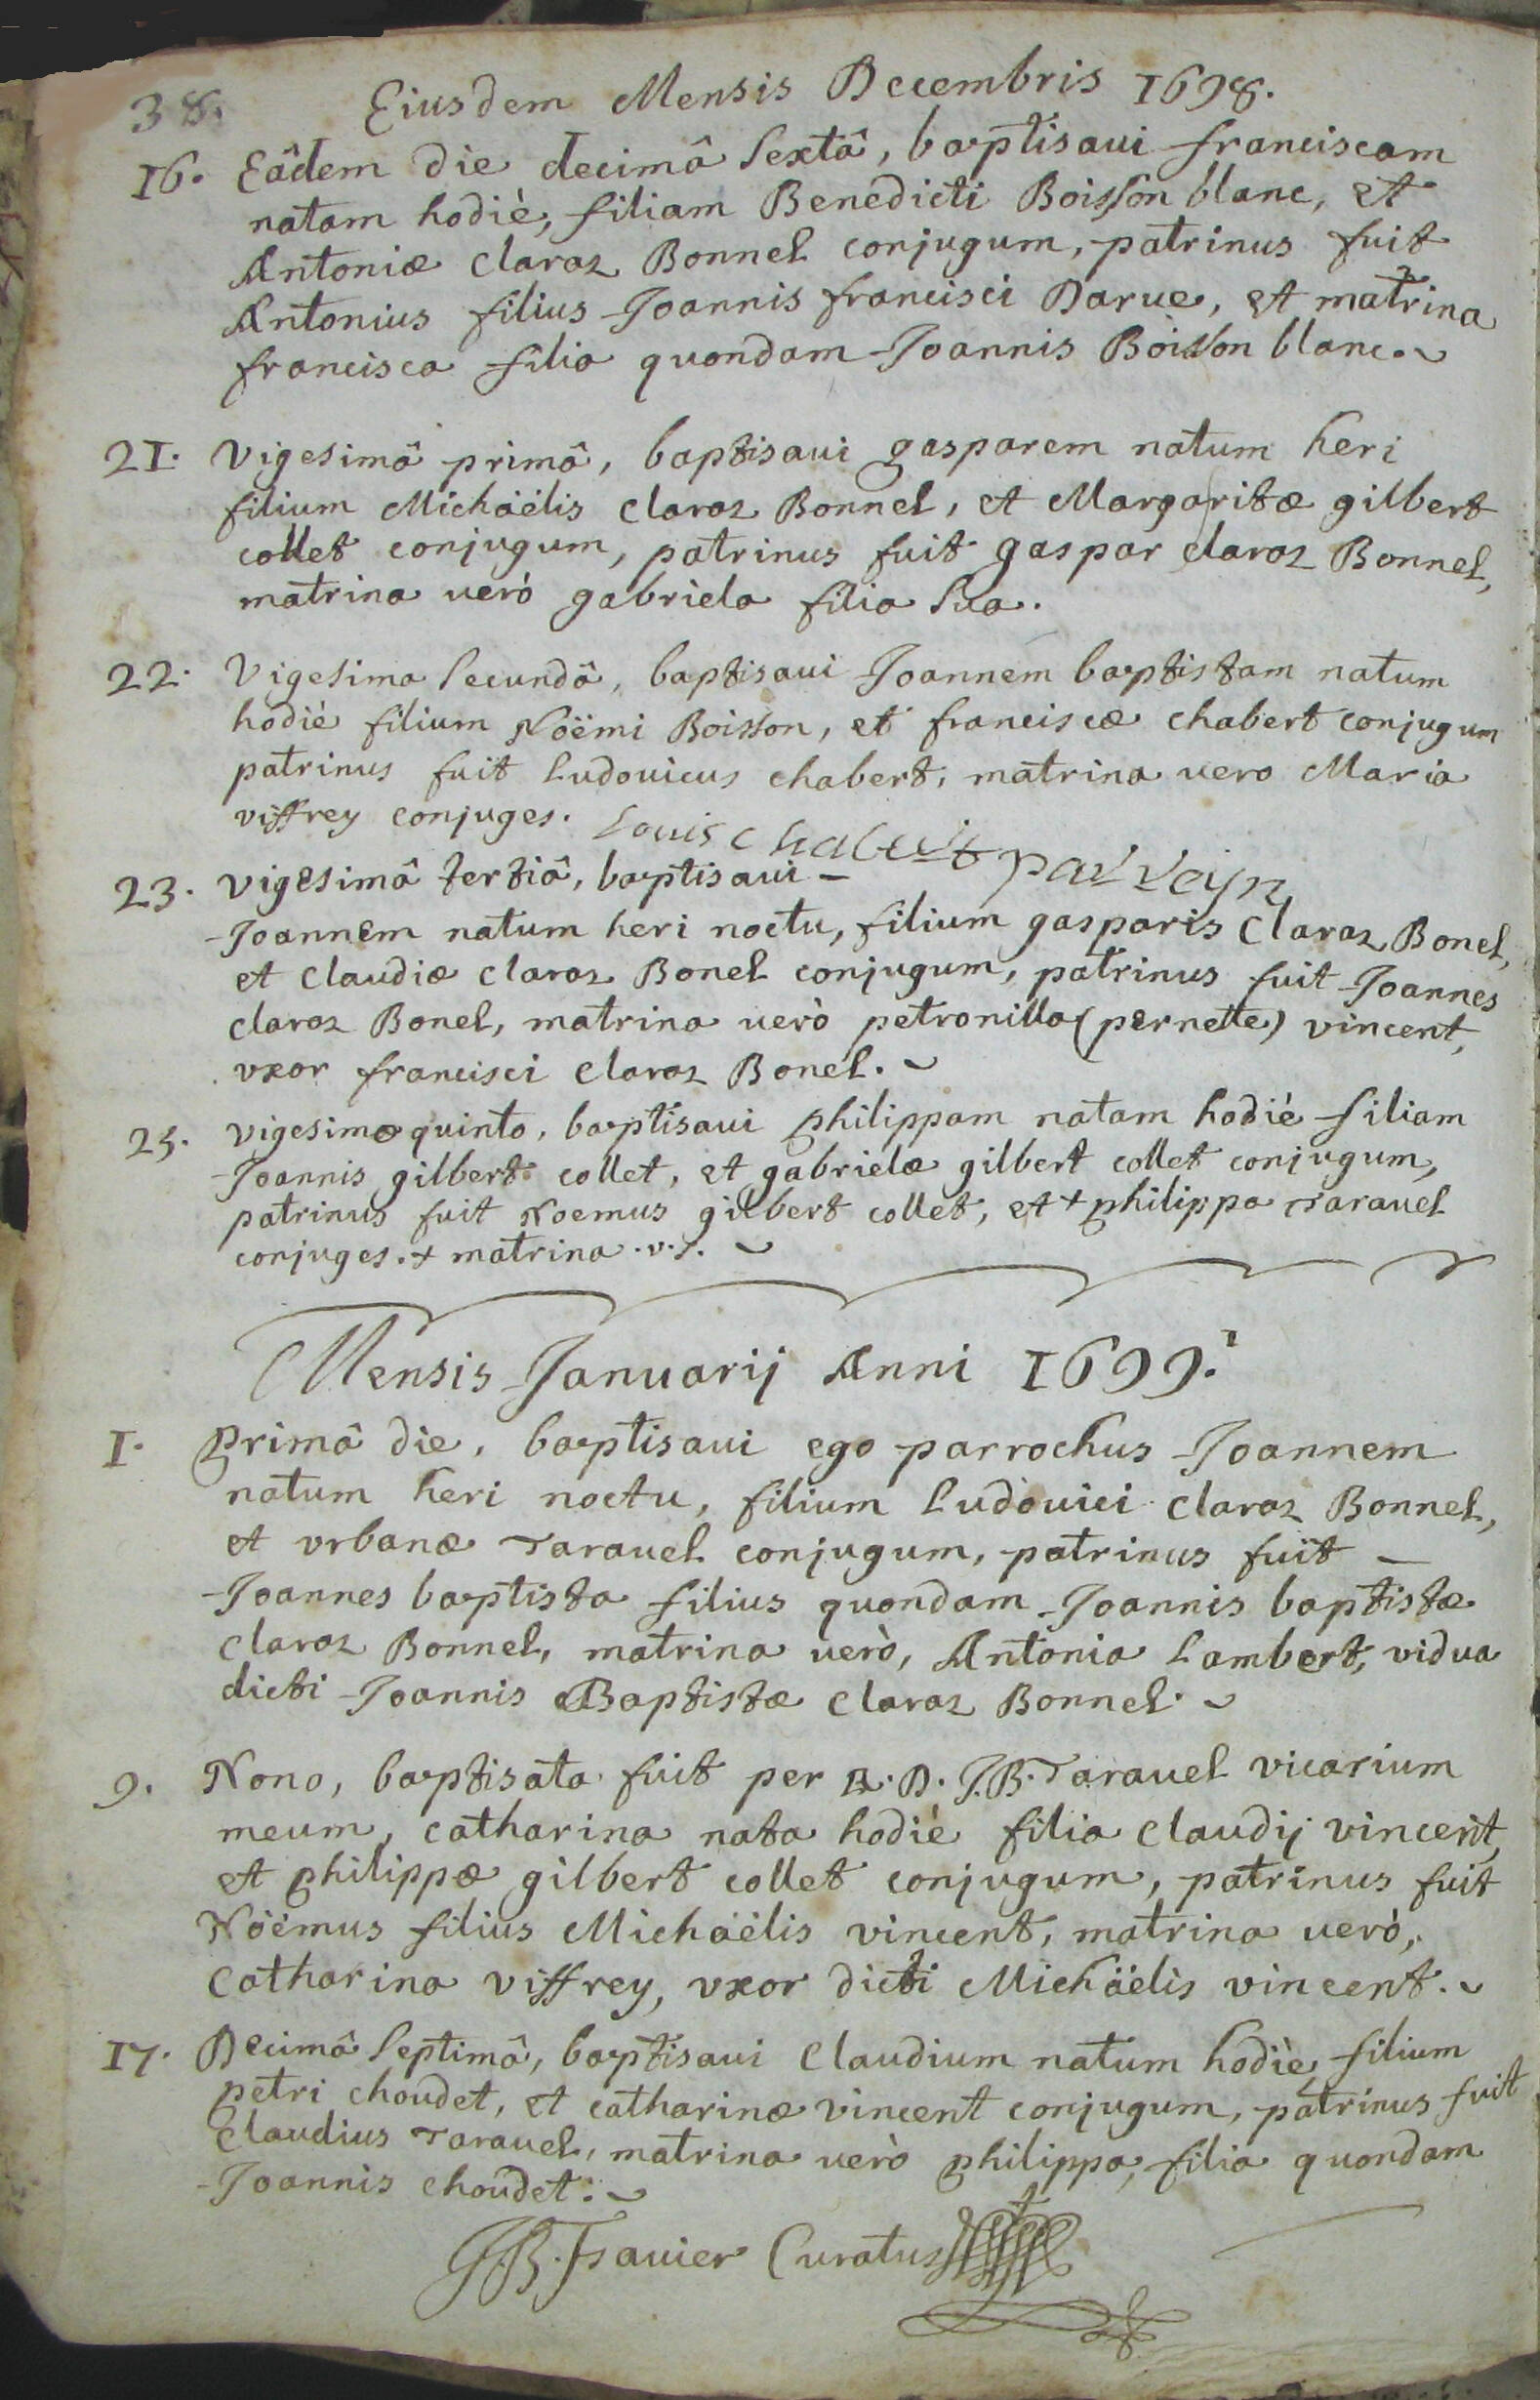 38. Eiusdem Mensis Decembris 1698.
16. Eâdem die decimâ sextâ, baptisaui franciscam
natam hodiè, filiam Benedicti Boisson blanc, et
Antoniæ Claraz Bonnel conjugum, patrinus fuit
Antonius filius Joannis francisci Darue, et matrina
francisca filia quondam Joannis Boisson blanc.
21. Vigesimâ primâ, baptisaui gasparem natum heri
filium Michaëlis Claraz Bonnel, et Margaritæ gilbert
collet conjugum, patrinus fuit gaspar claraz Bonnel,
matrina uerò gabriela filia sua.
22. Vigesima secundâ, baptisaui Joannem baptistam natum
hodiè filium Noëmi Boisson, et franciscæ chabert conjugum
patrinus fuit Ludouicus chabert, matrina uero Maria
viffrey conjuges. Louis chabert parreyn
23. vigesimâ tertiâ, baptisaui –
Joannem natum heri noctu, filium gasparis Claraz Bonel,
et Claudiæ claraz Bonel conjugum, patrinus fuit Joannes
claraz Bonel, matrina uerò petronilla (pernette) vincent,
vxor francisci claraz Bonel.
25. vigesimo quinto, baptisaui philippam natam hodiè filiam
Joannis gilbert collet, et gabrielæ gilbert collet conjugum,
patrinus fuit Noemus gilbert collet, et + philippa Tarauel
conjuges. + matrina .v.s.
Mensis Januarij Anni 1699.
1. Primâ die, baptisaui ego parrochus Joannem
natum heri noctu, filium Ludouici Claraz Bonnel,
et vrbanæ Tarauel conjugum, patrinus fuit –
Joannes baptista filius quondam Joannis baptistæ
claraz Bonnel, matrina uerò, Antonia Lambert, vidua
dicti Joannis Baptistæ claraz Bonnel.
9. Nono, baptisata fuit per R. D. J.B. Tarauel vicarium
meum, catharina nata hodiè filia claudij vincent,
et philippæ gilbert collet conjugum, patrinus fuit
Noëmus filius Michaëlis vincent, matrina uerò,
Catharina viffrey, vxor dicti Michaëlis vincent.
17. Decimâ septimâ, baptisaui Claudium natum hodiè, filium
petri choudet, et catharinæ vincent conjugum, patrinus fuit
Claudius Tarauel, matrina uerò philippa, filia quondam
Joannis choudet.
J.B. Curatus